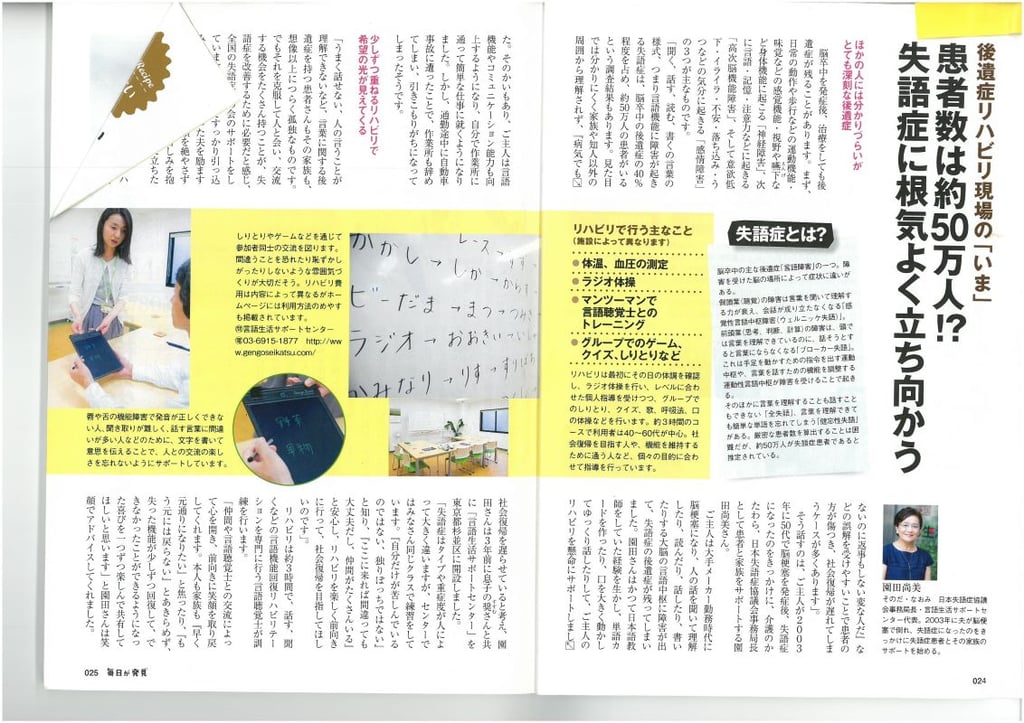 後遺症リハビリ現場の「いま」
患者数は約50万人!?
失語症に根気よく立ち向かう
ほかの人には分かりづらいが
とても深刻な後遺症
脳卒中を発症後、治療をしても後
遺症が残ることがあります。まず、
日常の動作や歩行などの運動機能・
味覚などの感覚機能・視野や嚥下な
ど身体機能に起こる「神経障害」、次
に言語・記憶・注意力などに起きる
「高次脳機能障害」、そして意欲低
下・イライラ・不安・落ち込み・う
つなどの気分に起きる「感情障害」
の3つが主なものです。
「聞く、話す、読む、書くの言葉の
様式、つまり言語機能に障害が起き
る失語症は、脳卒中の後遺症の40%
程度を占め、約50万人の患者がいる
という調査結果もあります。見た目
では分かりにくく家族や知人以外の
周囲から理解されず、「病気でも
失語症とは?
脳卒中の主な後遺症「言語障害」の一つ。障
害を受けた脳の場所によって症状に違いが
ある。
側頭葉(聴覚)の障害は言葉を聞いて理解す
る力が衰え、会話が成り立たなくなる「感
覚性言語中枢障害(ウェルニッケ失語)」。
前頭葉(思考、判断、計算)の障害は、頭で
は言葉を理解できているのに、話そうとす
ると言葉にならなくなる「ブローカー失語」。
これは手足を動かすための指令を出す運動
中枢や、言葉を話すための機能を調整する
運動性言語中枢が障害を受けることで起き
る。
そのほかに言葉を理解することも話すこと
もできない「全失語」、言葉を理解できて
も簡単な単語を忘れてしまう「健忘性失語」
がある。厳密な患者数を算出することは困
難だが、約50万人が失語症患者であると
推定されている。
リハビリで行う主なこと
(施設によって異なります)
●体温、血圧の測定
●ラジオ体操
●マンツーマンで
言語聴覚士との
トレーニング
●グループでのゲーム、
クイズ、しりとりなど
リハビリは最初にその日の体調を確認
し、ラジオ体操を行い、レベルに合わせ
た個人指導を受けつつ、グループで
のしりとり、クイズ、歌、呼吸法、口
の体操などを行います。約3時間のコ
ースで利用者は40〜60代が中心。社
会復帰を目指す人や、機能を維持する
ために通う人など、個々の目的に合わ
せて指導を行っています。
園田尚美
そのだ・なおみ 日本失語症協議
会事務局長・言語生活サポートセ
ンター代表。2003年に夫が脳梗
塞で倒れ、失語症になったのをき
っかけに失語症患者とその家族
のサポートを始める。
ないのに返事もしない変な人だ」な
どの誤解を受けやすいことで患者の
方が傷つき、社会復帰が遅れてしま
うケースが多くあります」
そう話すのは、ご主人が2003
年に50代で脳梗塞を発症後、失語症
になったのをきっかけに、介護のか
たわら、日本失語症協議会事務局長
として患者と家族をサポートする園
田尚美さん。
ご主人は大手メーカー勤務時代に
脳梗塞になり、人の話を聞いて理解
したり、読んだり、話したり、書い
たりする大脳の言語中枢に障害が出
て、失語症の後遺症が残ってしまい
ました。園田さんはかつて日本語教
師をしていた経験を生かし、単語カ
ードを作ったり、口を大きく動かし
てゆっくり話したりして、ご主人の
リハビリを懸命にサポートしまし
024
た。そのかいもあり、ご主人は言語
機能やコミュニケーション能力も向
上するようになり、自分で作業所に
通って簡単な仕事に就くようになり
ました。しかし、通勤途中に自動車
事故に遭ったことで、作業所も辞め
てしまい、引きこもりがちになって
しまったそうです。
少しずつ重ねるリハビリで
希望の光が見えてくる
「うまく話せない、人の言うことが
理解できないなど、言葉に関する後
遺症を持つ患者さんもその家族も、
想像以上につらく孤独なものです。
でもそれを克服して人と会い、交流
する機会をたくさん持つことが、失
語症を改善するために必要だと感じ、
全国の失語症
会のサポートをし
ていま
すっかり引っ込
た夫を励ます
を絶やさず
しみを抱
立ちた
Recipe
しりとりやゲームなどを通じて
参加者同士の交流を図ります。
間違うことを恐れたり恥ずかし
がったりしないような雰囲気づ
くりが大切だそう。リハビリ費
用は内容によって異なるがホー
ムページには利用方法のめやす
も掲載されています。
㉄言語生活サポートセンター
☎03-6915-1877 http://ww
w.gengoseikatsu.com/
かかし→しか→から
ビーだま→まっ→つ
ラジオ→おおきい
かみなり→りす→すっぱ
野草
草綱
唇や舌の機能障害で発音が正しくできな
い人、聞き取りが難しく、話す言葉に間違
いが多い人などのために、文字を書いて
意思を伝えることで、人との交流の楽し
さを忘れないようにサポートしています。
社会復帰を遅らせていると考え、園
田さんは3年前に息子の奨さんと共
に「言語生活サポートセンター」を
東京都杉並区に開設しました。
「失語症はタイプや重症度が人によ
って大きく違いますが、センターで
はみなさん同じクラスで練習をして
います。『自分だけが苦しんでいる
と思ったが、独りぼっちではない』
と知り、『ここに来れば間違っても
大丈夫だし、仲間がたくさんいる』
と安心し、リハビリを楽しく前向き
に行って、社会復帰を目指してほし
いのです」
リハビリは約3時間で、話す、聞
くなどの言語機能回復リハビリテー
ションを専門に行う言語聴覚士が訓
練を行います。
「仲間や言語聴覚士との交流によっ
て心を開き、前向きに笑顔を取り戻
してくれます。本人も家族も『早く
元通りになりたい』と焦ったり、『も
う元には戻らない』とあきらめず、
失った機能が少しずつ回復して、で
きなかったことができるようになっ
た喜びを一つずつ楽しんで共有して
ほしいと思います」と園田さんは笑
顔でアドバイスしてくれました。
025 毎日が発見